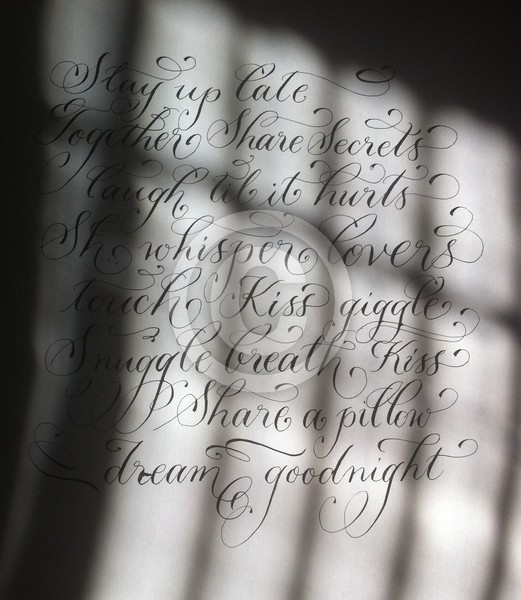 Stay up late
Together Share Secrets
laugh til it hurts
Sh.. whisper lovers
touch Kiss giggle
Snuggle breath Kiss
Share a pillow
dream goodnight